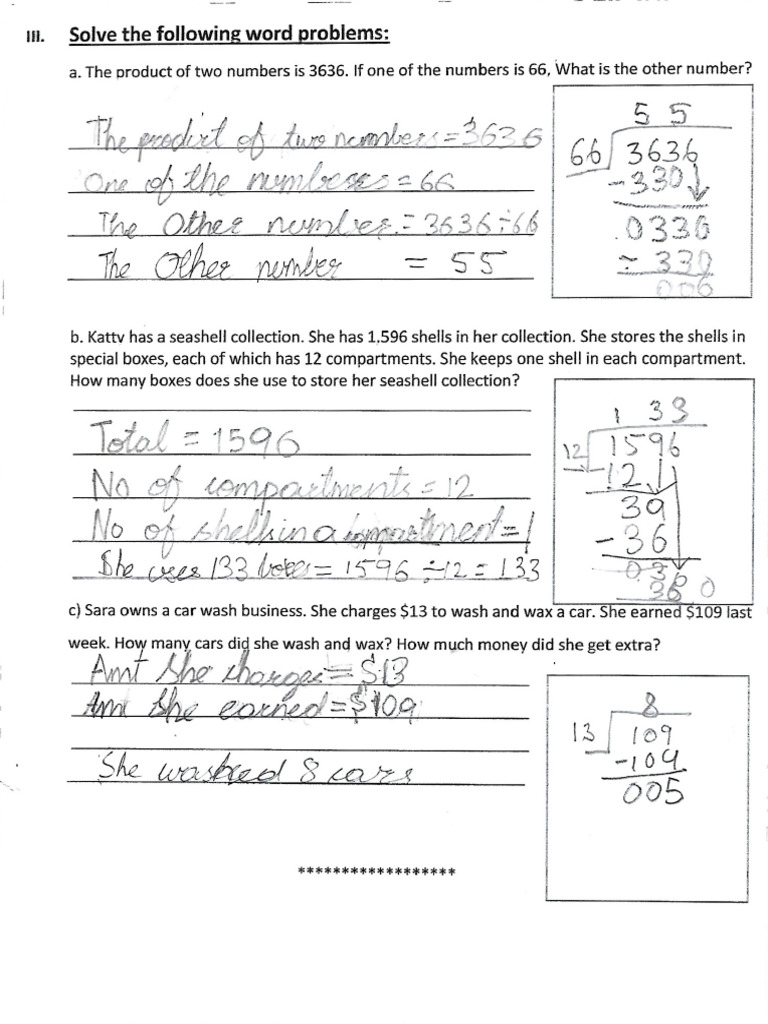 III. Solve the following word problems:
a. The product of two numbers is 3636. If one of the numbers is 66, What is the other number?
The product of two numbers = 3636
One of the numbers = 66
The Other number = 3636 ÷ 66
The Other number = 55
55
66 3636
- 330
0336
- 330
006
b. Katty has a seashell collection. She has 1,596 shells in her collection. She stores the shells in
special boxes, each of which has 12 compartments. She keeps one shell in each compartment.
How many boxes does she use to store her seashell collection?
Total = 1596
No of compartments = 12
No of shells in a compartment = 1
She uses 133 boxes = 1596 ÷ 12 = 133
133
12 1596
- 12
39
- 36
036
36 0
c) Sara owns a car wash business. She charges $13 to wash and wax a car. She earned $109 last
week. How many cars did she wash and wax? How much money did she get extra?
Amt She charges = $13
Amt She earned = $109
She washed 8 cars
8
13 109
- 104
005
******************